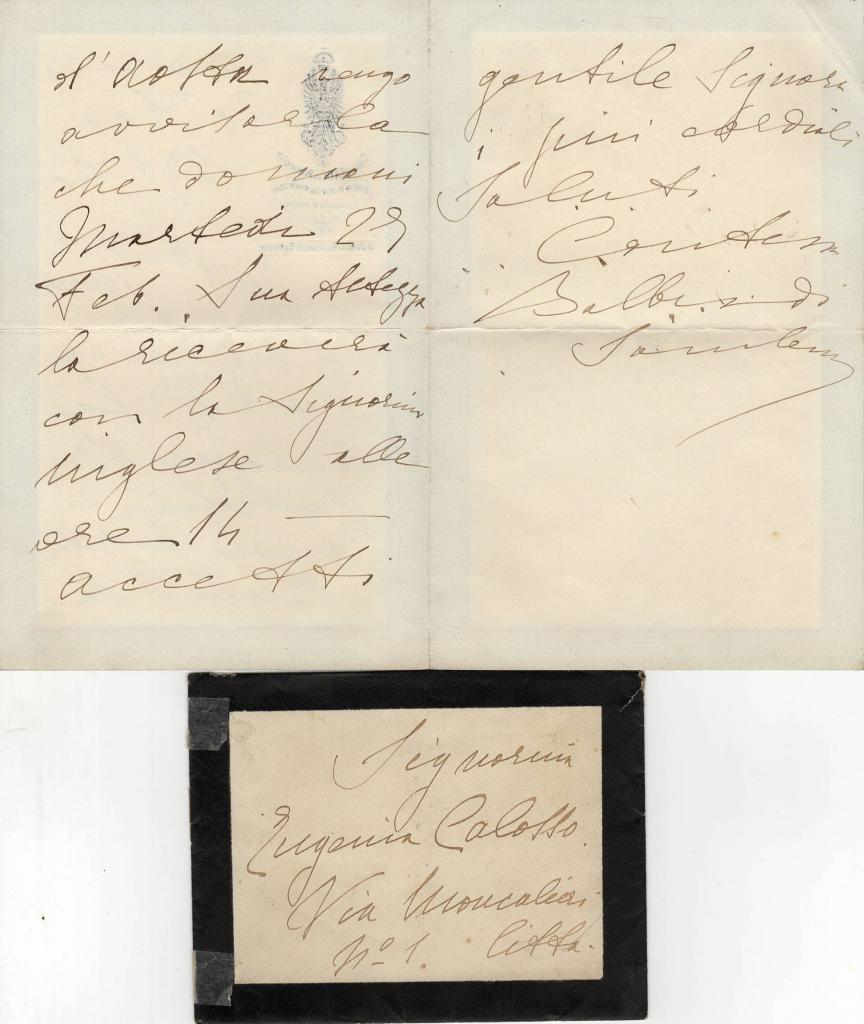 d'Aosta vengo
avvisarla
che domani
Martedì 29
Feb. Sua Altezza
la riceverà
con la Signorina
inglese alle
ore 14 —
accetti
gentile Signora
i più cordiali
saluti
Contessa
Balbis di
Signorina
Eugenia Calosso.
Via Moncalieri
No 1. Città.